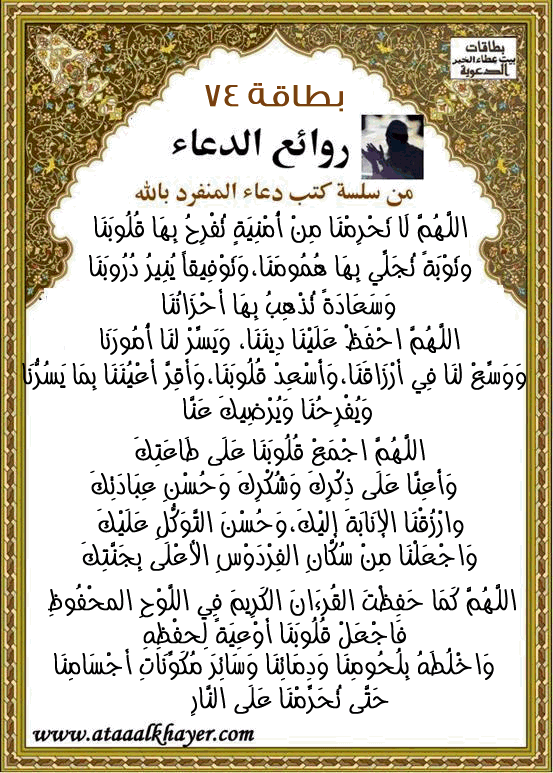 بطاقات
بيت عطاء الخير
الدعوية
بطاقة ٧٤
روائع الدعاء
من سلسة كتب دعاء المنفرد بالله
اللَّهُمَّ لَا تَحْرِمْنَا مِنْ أُمْنِيَةٍ تُفْرِحُ بِهَا قُلُوبَنَا
وَتَوْبَةً تُجَلِّي بِهَا هُمُومَنَا،وَتَوْفِيقاً يُنِيرُ دُرُوبَنَا
وَسَعَادَةً تُذْهِبُ بِهَا أَحْزَانُنَا
اللَّهُمَّ احْفَظْ عَلَيْنَا دِينَنَا، وَيَسِّرْ لَنَا أُمُورَنَا
وَوَسِّعْ لَنَا فِي أَرْزَاقَنَا،وَأَسْعِدْ قُلُوبَنَا،وَأَقِرَّ أَعْيُنَنَا بِمَا يَسُرُّنَا
وَيُفْرِحُنَا وَيُرْضِيكَ عَنَّا
اللَّهُمَّ اجْمَعْ قُلُوبَنَا عَلَى طَاعَتِكَ
وَأَعِنَّا عَلَى ذِكْرِكَ وَشُكْرِكَ وَحُسْنِ عِبَادَتِكَ
وارْزُقْنَا الإنَابَةَ إلَيْكَ،وَحُسْنَ التَّوَكُّلِ عَلَيْكَ
وَاجْعَلْنَا مِنْ سُكَّانِ الفِرْدَوْسِ الأَعْلَى بِجَنَّتِكَ
اللَّهُمَّ كَمَا حَفِظْتَ القُرءَانَ الكَرِيمَ فِي اللَّوْحِ المحْفُوظِ
فَاجْعَلْ قُلُوبَنَا أَوْعِيَةً لِحِفْظِهِ
وَاخْلُطهُ بِلُحُومِنَا وَدِمَائِنَا وَسَائِرَ مُكَوِّنَاتِ أَجْسَامِنَا
حَتَّى تُحَرِّمْنَا عَلَى النَّارِ
www.ataaalkhayer.com